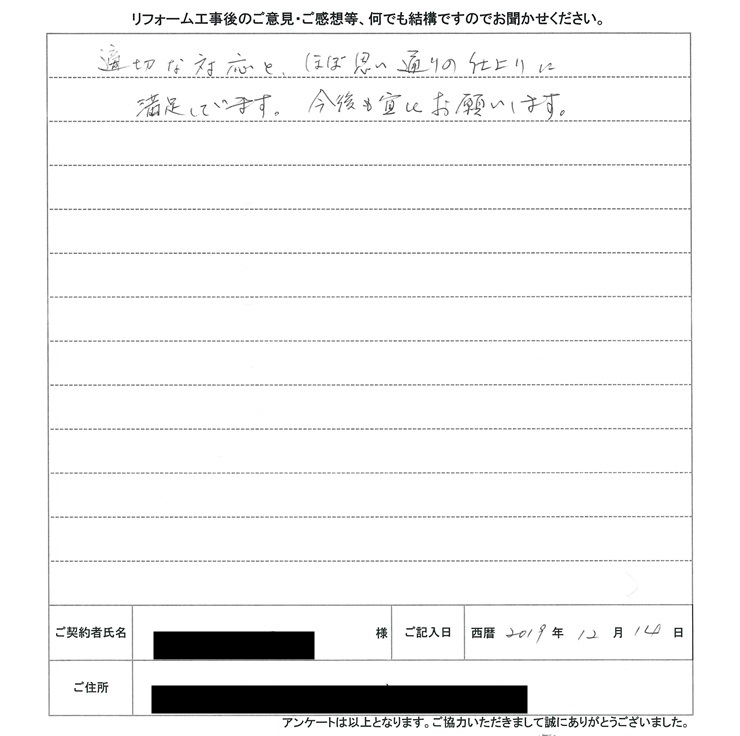 リフォーム工事後のご意見・ご感想等、何でも結構ですのでお聞かせください。
適切な対応と、ほぼ思い通りの仕上りに
満足しています。今後も宜しくお願いします。
ご契約者氏名 様 ご記入日 西暦 2019 年 12 月 14 日
ご住所
アンケートは以上となります。ご協力いただきまして誠にありがとうございました。